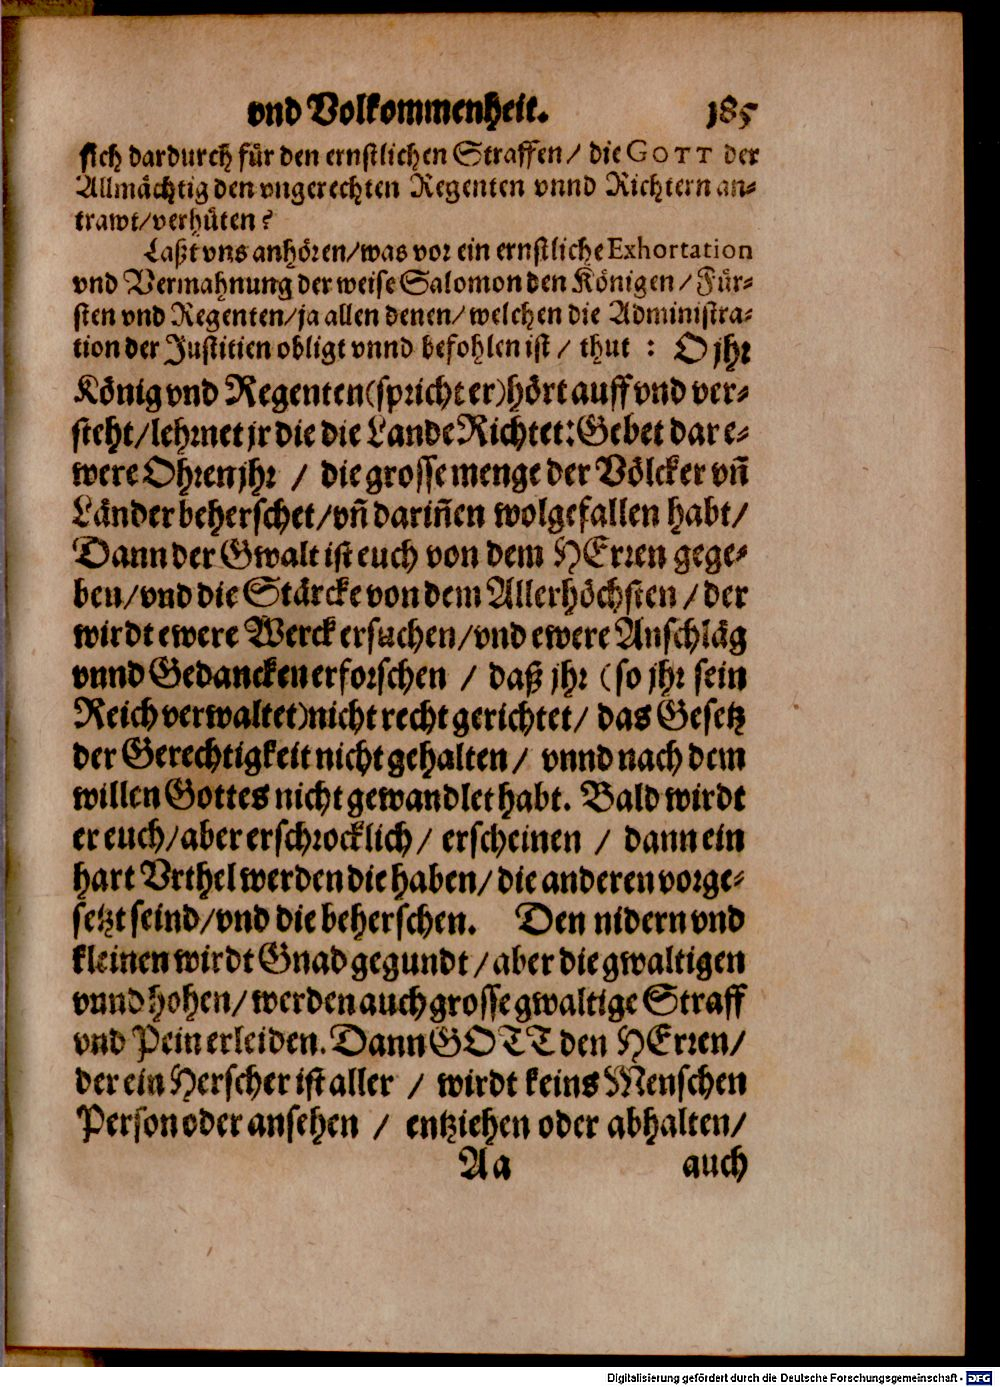 vnd Volkommenheit. 185
sich dardurch für den ernstlichen Straffen/ die GOTT der
Allmächtig den vngerechten Regenten vnnd Richtern an-
trawt/verhüten?
Laßt vns anhören/was vor ein ernstliche Exhortation
vnd Vermahnung der weise Salomon den Königen/ Für-
sten vnd Regenten/ja allen denen/ welchen die Administra-
tion der Justitien obligt vnnd befohlen ist/ thut: O jhr
König vnd Regenten(spricht er)hört auff vnd ver-
steht/lehrnet jr die die Lande Richtet: Gebet dar e-
were Ohren jhr / die grosse menge der Völcker vñ
Länder beherschet/vñ dariñen wolgefallen habt/
Dann der Gwalt ist euch von dem HErren gege-
ben/vnd die Stärcke von dem Allerhöchsten/der
wirdt ewere Werck ersuchen/vnd ewere Anschläg
vnnd Gedancken erforschen / daß jhr (so jhr sein
Reich verwaltet)nicht recht gerichtet/ das Gesetz
der Gerechtigkeit nicht gehalten/ vnnd nach dem
willen Gottes nicht gewandlet habt. Bald wirdt
er euch/aber erschrocklich/ erscheinen / dann ein
hart Vrthel werden die haben/die anderen vorge-
setzt seind/vnd die beherschen. Den nidern vnd
kleinen wirdt Gnad gegundt/aber die gwaltigen
vnnd hohen/werden auch grosse gwaltige Straff
vnd Pein erleiden. Dann GOTT den HErren/
der ein Herscher ist aller / wirdt keins Menschen
Person oder ansehen / entziehen oder abhalten/
Aa auch
Digitalisierung gefördert durch die Deutsche Forschungsgemeinschaft - DFG